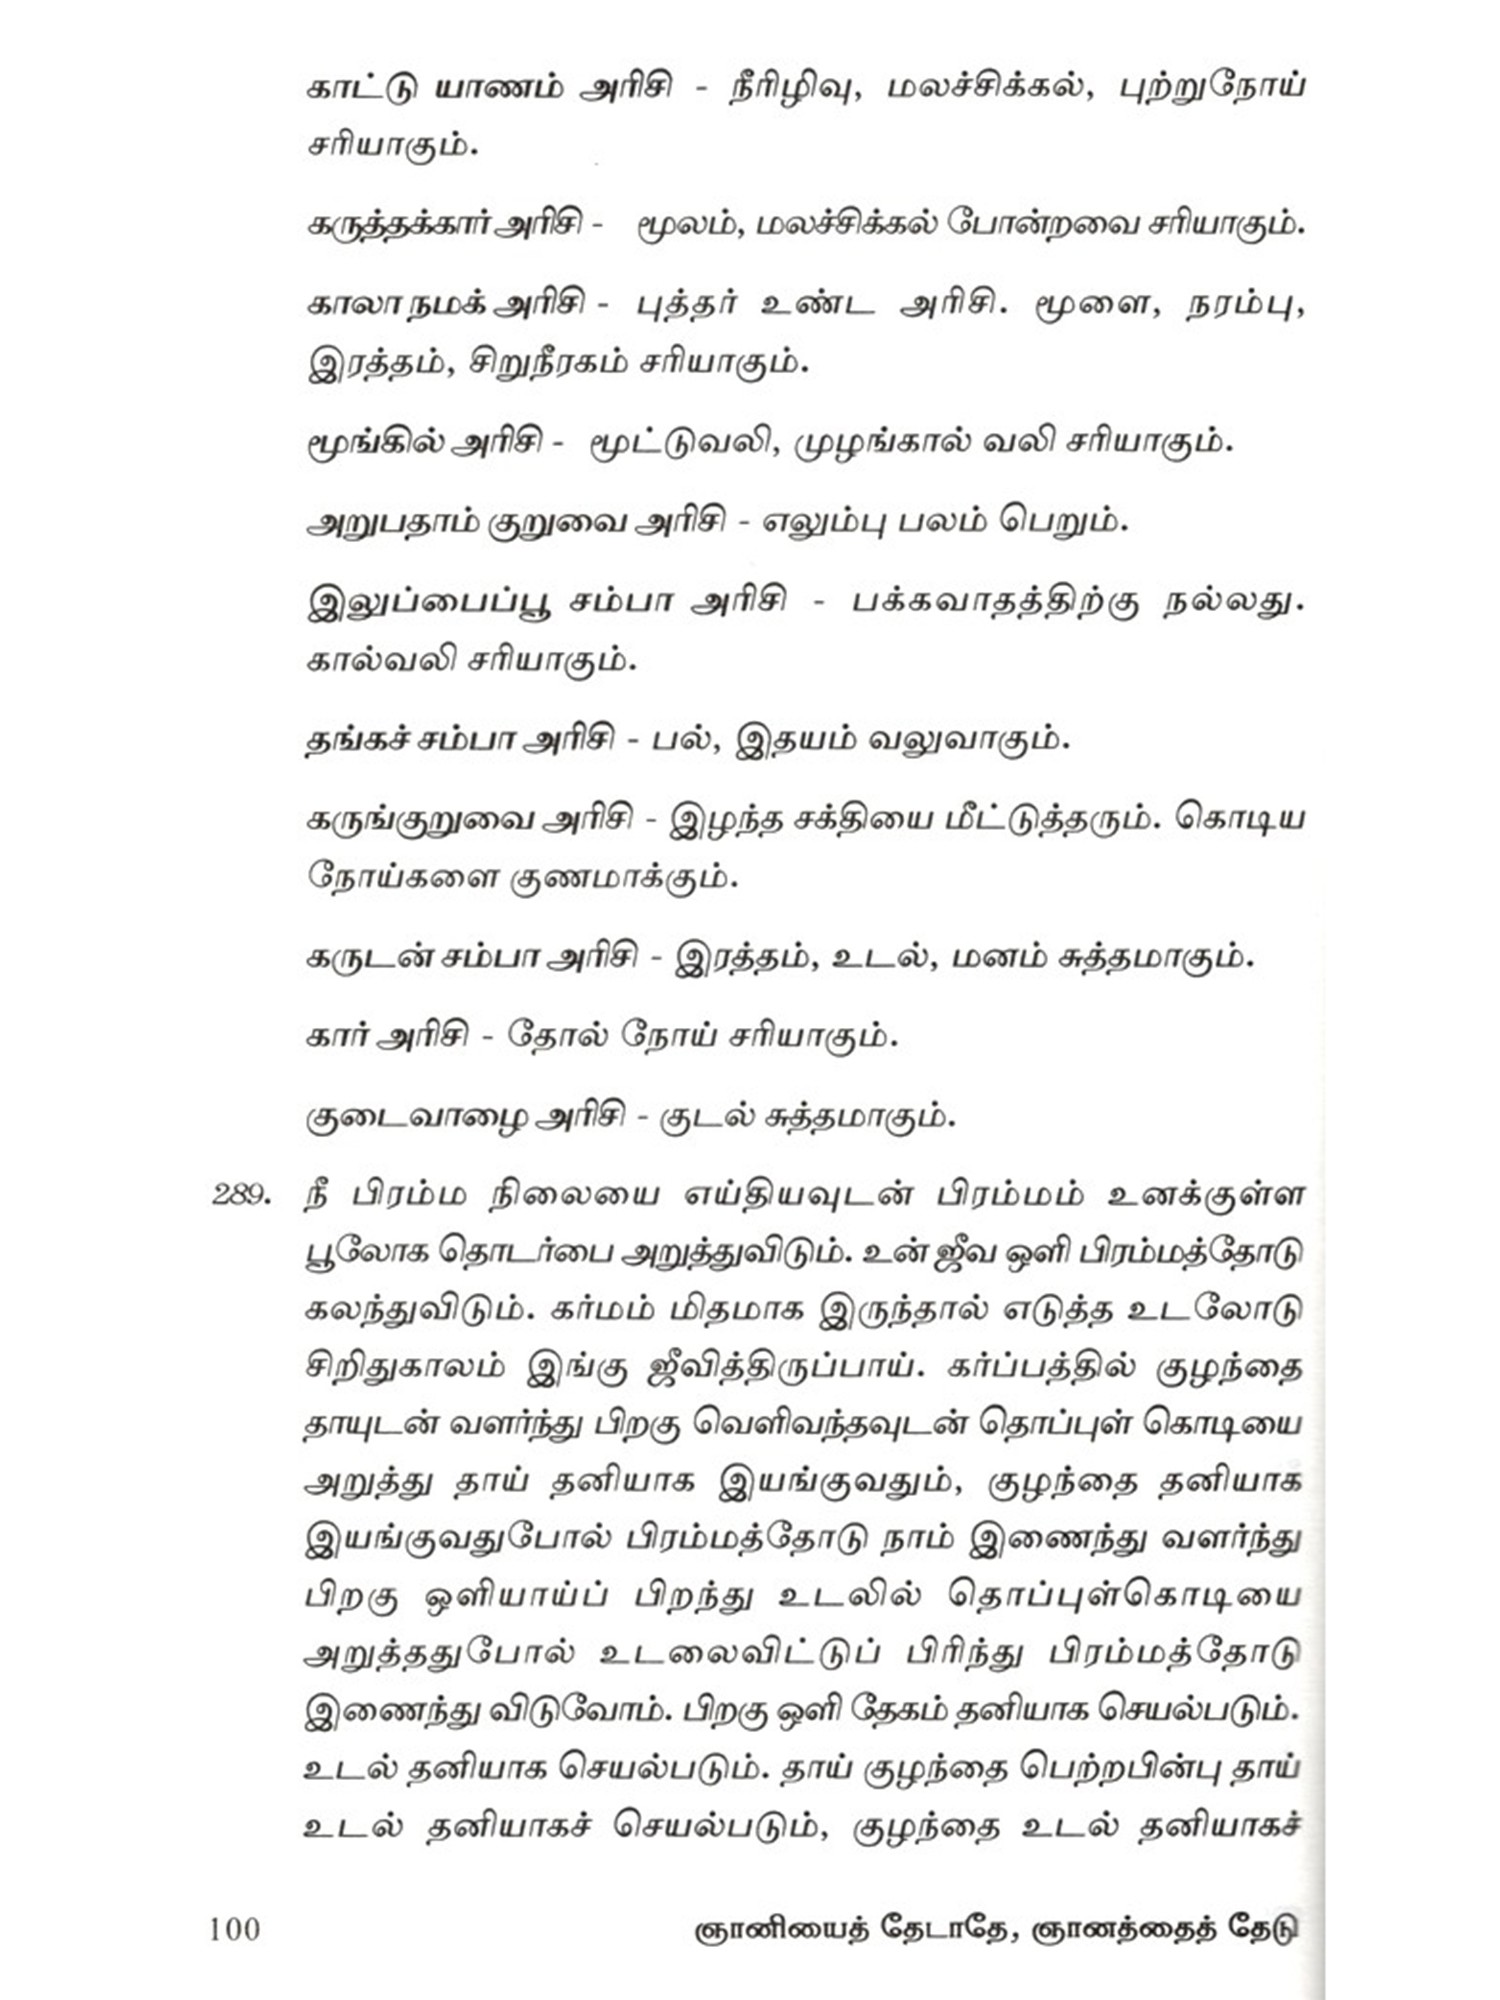 காட்டு யாணம் அரிசி - நீரிழிவு, மலச்சிக்கல், புற்றுநோய்
சரியாகும்.
கருத்தக்கார் அரிசி - மூலம், மலச்சிக்கல் போன்றவை சரியாகும்.
காலா நமக் அரிசி - புத்தர் உண்ட அரிசி. மூளை, நரம்பு,
இரத்தம், சிறுநீரகம் சரியாகும்.
மூங்கில் அரிசி - மூட்டுவலி, முழங்கால் வலி சரியாகும்.
அறுபதாம் குறுவை அரிசி - எலும்பு பலம் பெறும்.
இலுப்பைப்பூ சம்பா அரிசி - பக்கவாதத்திற்கு நல்லது.
கால்வலி சரியாகும்.
தங்கச் சம்பா அரிசி - பல், இதயம் வலுவாகும்.
கருங்குறுவை அரிசி - இழந்த சக்தியை மீட்டுத்தரும். கொடிய
நோய்களை குணமாக்கும்.
கருடன் சம்பா அரிசி - இரத்தம், உடல், மனம் சுத்தமாகும்.
கார் அரிசி - தோல் நோய் சரியாகும்.
குடைவாழை அரிசி - குடல் சுத்தமாகும்.
289. நீ பிரம்ம நிலையை எய்தியவுடன் பிரம்மம் உனக்குள்ள
பூலோக தொடர்பை அறுத்துவிடும். உன் ஜீவ ஒளி பிரம்மத்தோடு
கலந்துவிடும். கர்மம் மிதமாக இருந்தால் எடுத்த உடலோடு
சிறிதுகாலம் இங்கு ஜீவித்திருப்பாய். கர்ப்பத்தில் குழந்தை
தாயுடன் வளர்ந்து பிறகு வெளிவந்தவுடன் தொப்புள் கொடியை
அறுத்து தாய் தனியாக இயங்குவதும், குழந்தை தனியாக
இயங்குவதுபோல் பிரம்மத்தோடு நாம் இணைந்து வளர்ந்து
பிறகு ஒளியாய்ப் பிறந்து உடலில் தொப்புள்கொடியை
அறுத்ததுபோல் உடலைவிட்டுப் பிரிந்து பிரம்மத்தோடு
இணைந்து விடுவோம். பிறகு ஒளி தேகம் தனியாக செயல்படும்.
உடல் தனியாக செயல்படும். தாய் குழந்தை பெற்றபின்பு தாய்
உடல் தனியாகச் செயல்படும், குழந்தை உடல் தனியாகச்
100 ஞானியைத் தேடாதே, ஞானத்தைத் தேடு